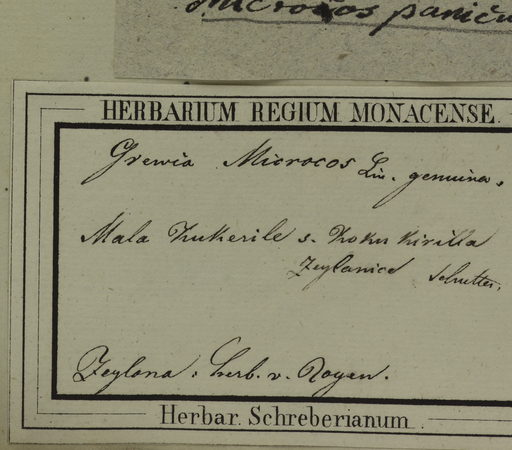 Microcos panicu
HERBARIUM REGIUM MONACENSE.
Grewia Microcos Lin. genuina.
Mala Kukerile s. Kohu Kirilla
Zeylanice
Zeylona. herb. v. Royen.
Herbar. Schreberianum